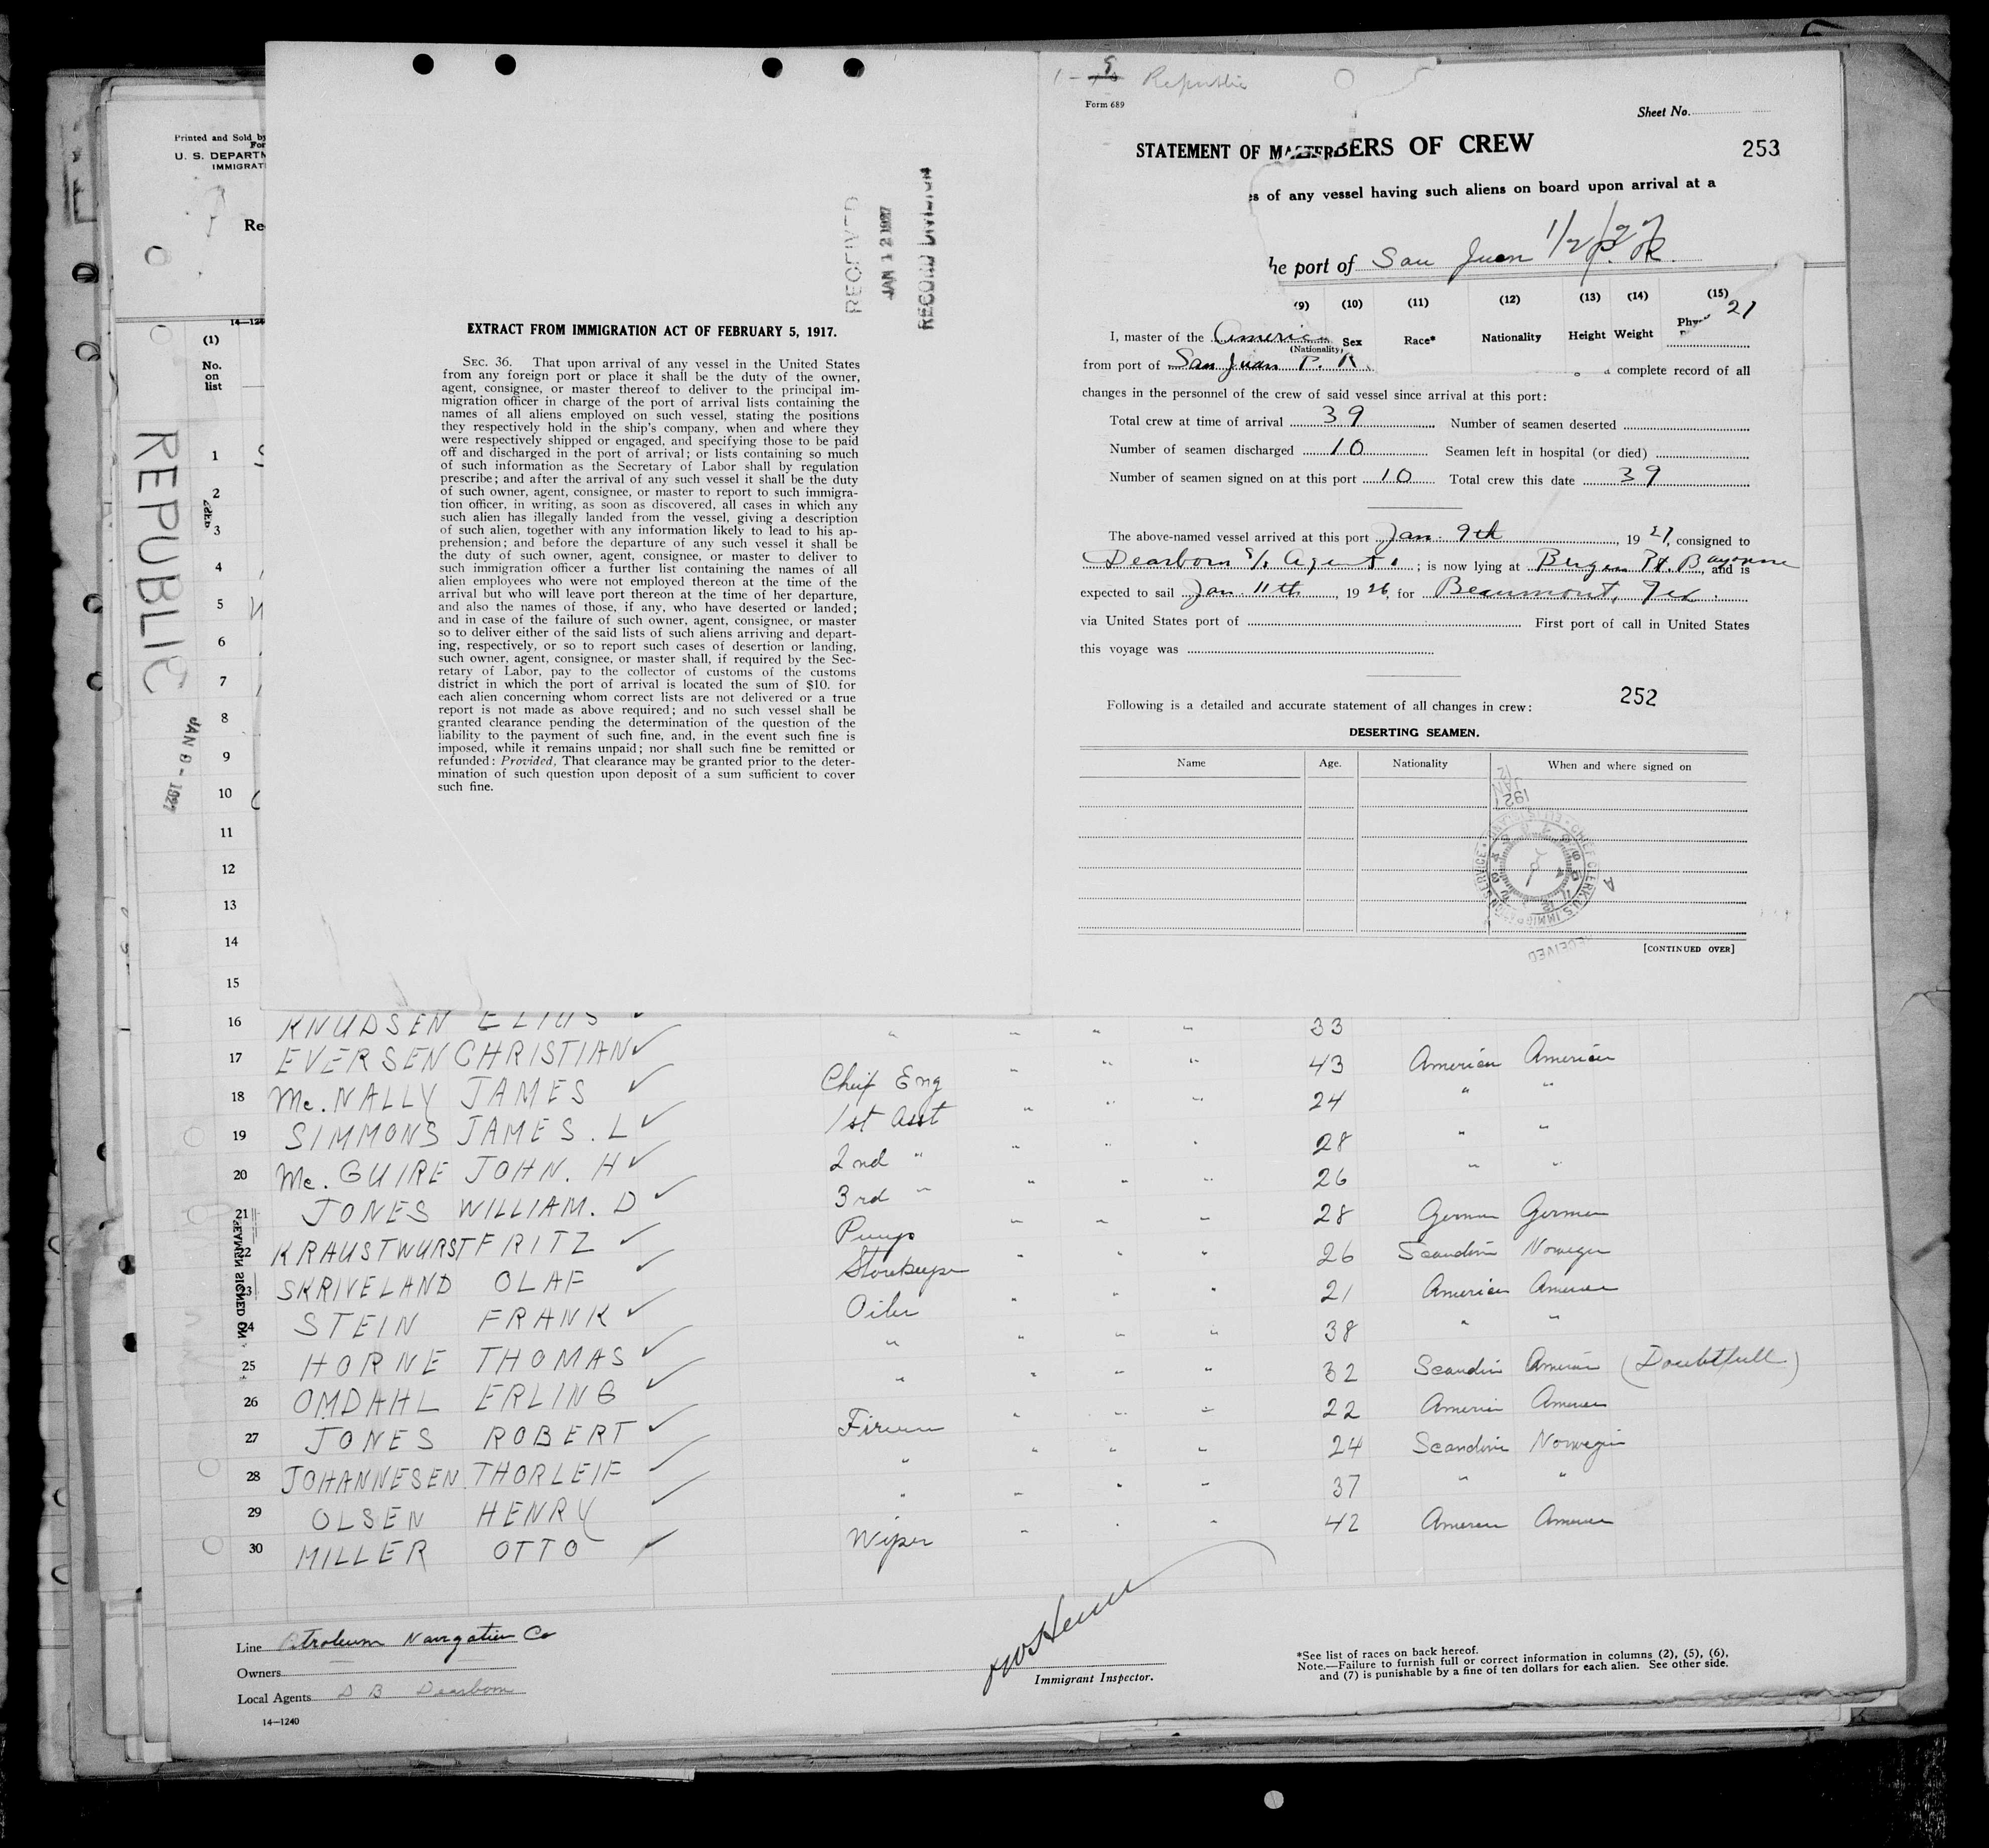 1 - 9 Republic
Form 689
Sheet No.
STATEMENT OF MASTER
BERS OF CREW
253
s of any vessel having such aliens on board upon arrival at a
he port of San Juan 1/2/27 P. R.
(9) (10) (11) (12) (13) (14) (15)
Sex Race* Nationality Height Weight
21
I, master of the America
(Nationality)
from port of San Juan P. R.
complete record of all
changes in the personnel of the crew of said vessel since arrival at this port:
Total crew at time of arrival 39 Number of seamen deserted
Number of seamen discharged 10 Seamen left in hospital (or died)
Number of seamen signed on at this port 10 Total crew this date 39
The above-named vessel arrived at this port Jan. 9th, 1927, consigned to
Dearborn S/S Agents; is now lying at Bergen Pt. Bayonne, and is
expected to sail Jan. 11th, 1926, for Beaumont, Tex.
via United States port of First port of call in United States
this voyage was
Following is a detailed and accurate statement of all changes in crew: 252
DESERTING SEAMEN.
Name Age. Nationality When and where signed on
JAN 12
1927
CHIEF CLERK U.S. IMMIGRATION SERVICE
RECEIVED
[CONTINUED OVER]
RECEIVED
JAN 12 1927
RECORD DIVISION
EXTRACT FROM IMMIGRATION ACT OF FEBRUARY 5, 1917.
SEC. 36. That upon arrival of any vessel in the United States
from any foreign port or place it shall be the duty of the owner,
agent, consignee, or master thereof to deliver to the principal im-
migration officer in charge of the port of arrival lists containing the
names of all aliens employed on such vessel, stating the positions
they respectively hold in the ship's company, when and where they
were respectively shipped or engaged, and specifying those to be paid
off and discharged in the port of arrival; or lists containing so much
of such information as the Secretary of Labor shall by regulation
prescribe; and after the arrival of any such vessel it shall be the duty
of such owner, agent, consignee, or master to report to such immigra-
tion officer, in writing, as soon as discovered, all cases in which any
such alien has illegally landed from the vessel, giving a description
of such alien, together with any information likely to lead to his ap-
prehension; and before the departure of any such vessel it shall be
the duty of such owner, agent, consignee, or master to deliver to
such immigration officer a further list containing the names of all
alien employees who were not employed thereon at the time of the
arrival but who will leave port thereon at the time of her departure,
and also the names of those, if any, who have deserted or landed;
and in case of the failure of such owner, agent, consignee, or master
so to deliver either of the said lists of such aliens arriving and depart-
ing, respectively, or so to report such cases of desertion or landing,
such owner, agent, consignee, or master shall, if required by the Sec-
retary of Labor, pay to the collector of customs of the customs
district in which the port of arrival is located the sum of $10. for
each alien concerning whom correct lists are not delivered or a true
report is not made as above required; and no such vessel shall be
granted clearance pending the determination of the question of the
liability to the payment of such fine, and, in the event such fine is
imposed, while it remains unpaid; nor shall such fine be remitted or
refunded: Provided, That clearance may be granted prior to the deter-
mination of such question upon deposit of a sum sufficient to cover
such fine.
Printed and Sold by
For
U. S. DEPARTM
IMMIGRAT
Re
14—124
(1)
No.
on
list
REPUBLIC
JAN 8 - 1927
1
2
3
4
5
6
7
8
9
10
11
12
13
14
15
16 KNUDSEN ELIUS " " " " 33
17 EVERSEN CHRISTIAN Cheif Eng " " " 43 American American
18 Mc. NALLY JAMES 1st asst " " " 24 " "
19 SIMMONS JAMES. L 2nd " " " " 28 " "
20 Mc. GUIRE JOHN. H 3rd " " " " 26 " "
21 JONES WILLIAM. D Pump " " " 28 German German
22 KRAUSTWURST FRITZ Storekeeper " " " 26 Scandin Norwegn
23 SKRIVELAND OLAF Oiler " " " 21 American American
24 STEIN FRANK " " " " 38 " "
25 HORNE THOMAS " " " " 32 Scandin American (Doubtfull)
26 OMDAHL ERLING Firemen " " " 22 American American
27 JONES ROBERT " " " " 24 Scandin Norwegin
28 JOHANNESEN THORLEIF " " " " 37 " "
29 OLSEN HENRY Wiper " " " 42 American American
30 MILLER OTTO
SEAMEN SIGNED ON
Line Petroleum Navigation Co
Owners
Local Agents D B Dearborn
14—1240
Immigrant Inspector.
*See list of races on back hereof.
Note.—Failure to furnish full or correct information in columns (2), (5), (6),
and (7) is punishable by a fine of ten dollars for each alien. See other side.